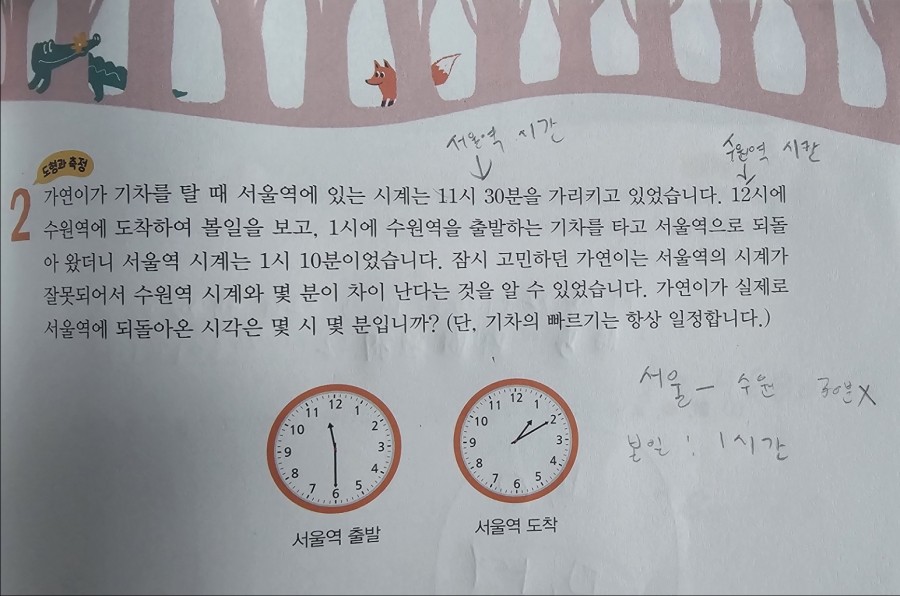 서울역 시간
수원역 시간
도형과 측정
2
가연이가 기차를 탈 때 서울역에 있는 시계는 11시 30분을 가리키고 있었습니다. 12시에
수원역에 도착하여 볼일을 보고, 1시에 수원역을 출발하는 기차를 타고 서울역으로 되돌
아 왔더니 서울역 시계는 1시 10분이었습니다. 잠시 고민하던 가연이는 서울역의 시계가
잘못되어서 수원역 시계와 몇 분이 차이 난다는 것을 알 수 있었습니다. 가연이가 실제로
서울역에 되돌아온 시각은 몇 시 몇 분입니까? (단, 기차의 빠르기는 항상 일정합니다.)
서울 - 수원 30분X
볼일 : 1시간
12 1 2 3 4 5 6 7 8 9 10 11
12 1 2 3 4 5 6 7 8 9 10 11
서울역 출발
서울역 도착